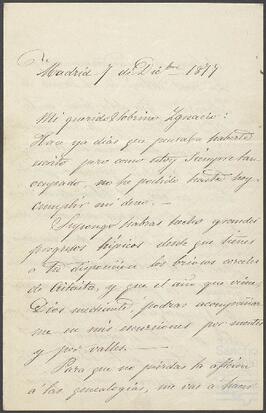 Madrid 7 de Dicbre 1877
Mi querido Sobrino Ignacio:
Hace ya dias que pensaba haberte
escrito pero como estoy siempre tan
ocupado, no he podido hasta hoy
cumplir mi deseo. —
Supongo habras hecho grandes
progresos hípicos desde que tienes
a tu disposicion los briosos corceles
de y que el año que viene
Dios mediante, podras acompañar
me en mis escursiones por montes
y por valles. —
Para que no pierdas la aficion
á las genealogias, me vas a hacer